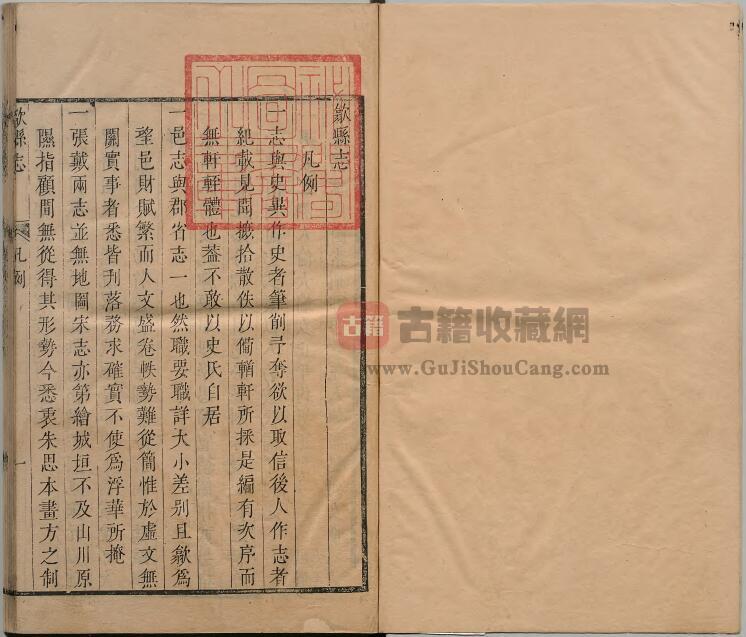 歙縣志
凡例
一志與史異作史者筆削予奪欲以取信後人作志者
紀載見聞摭拾散佚以備輶軒所採是編有次序而
無軒輊體也葢不敢以史氏自居
一邑志與郡省志一也然職要職詳大小差别且歙爲
望邑財賦繁而人文盛卷帙勢難從簡惟於虛文無
關實事者悉皆刊落務求確實不使爲浮華所掩
一張戴兩志並無地圖宋志亦第繪城垣不及山川原
隰指顧間無從得其形勢今悉裒朱思本畫方之制
歙縣志
凡例
一
古籍
古籍收藏網
www.GuJiShouCang.com